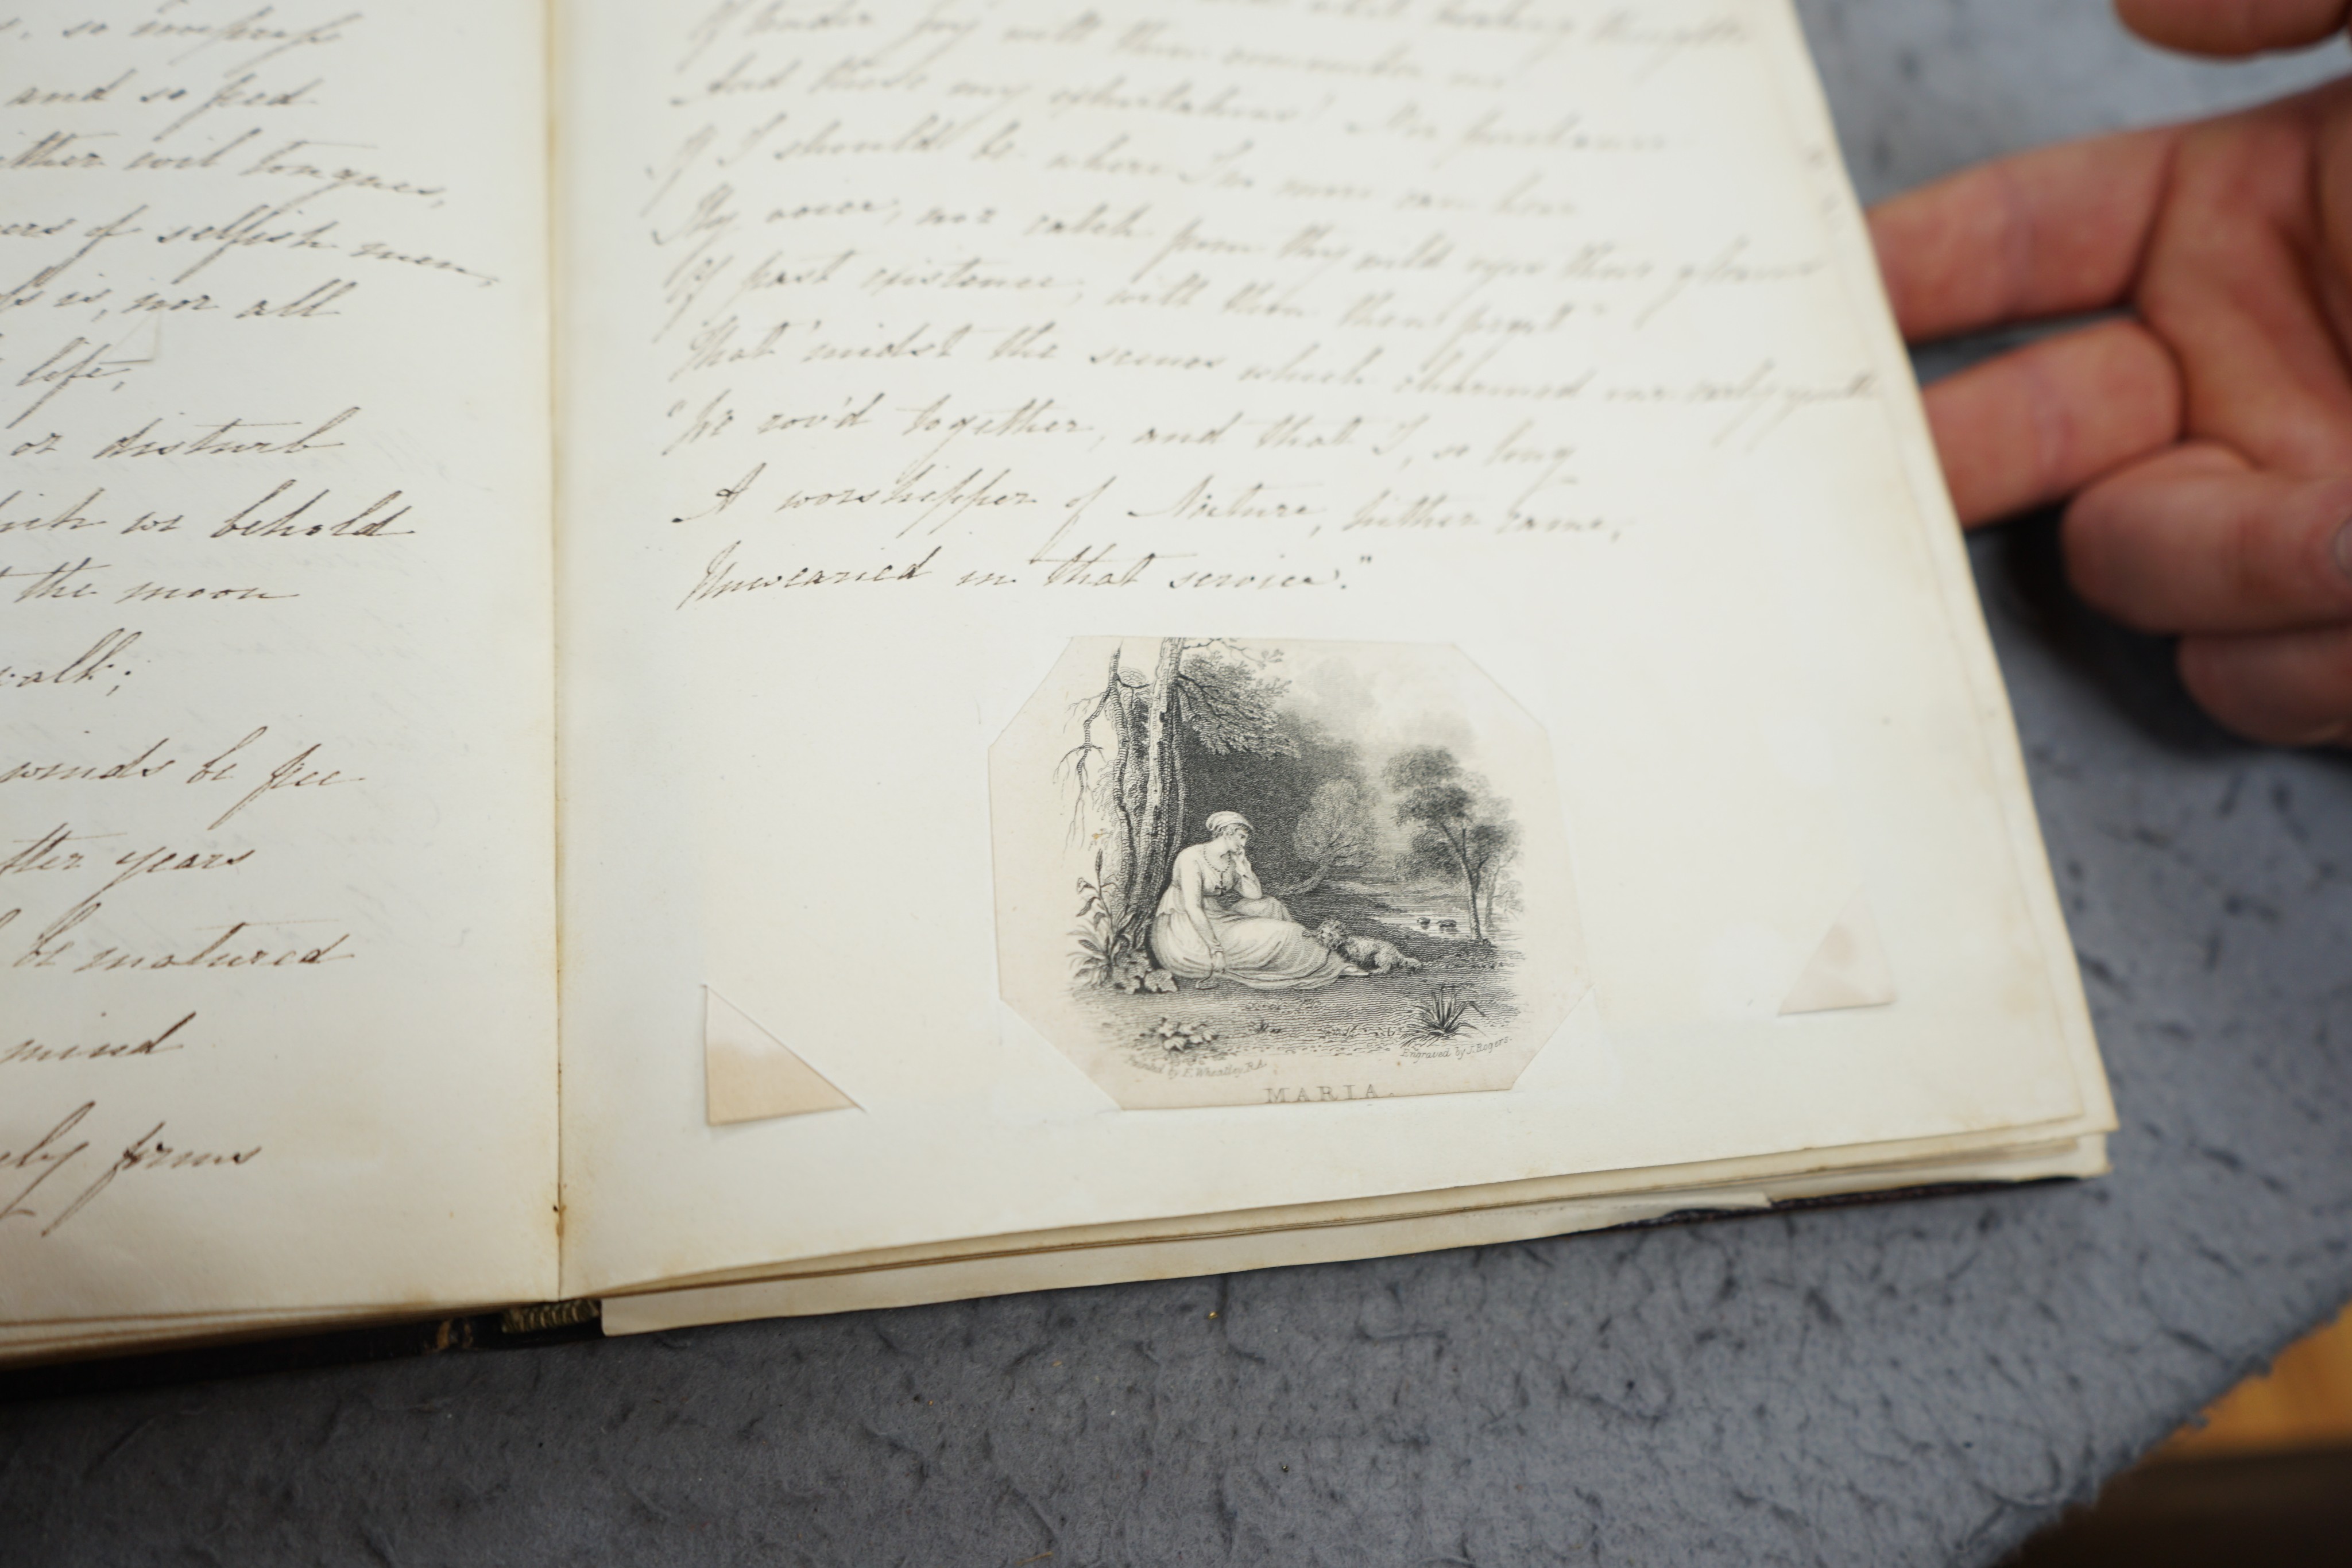 , so impress
and so feed
ither evil tongues,
ers of selfish men,
ds is, nor all
life,
or disturb
hich we behold
t the moon
walk;
winds be free
fter years
be matured
mind
ely forms
what healing thoughts
Of tender joy wilt thou remember me
And these my exhortations! Nor perchance
If I should be where I no more can hear
Thy voice, nor catch from thy wild eyes these gleams
Of past existence, wilt thou then forget
That 'midst the scenes which charmed our early youth
"We rov'd together, and that I, so long
A worshipper of Nature, hither came,
Unwearied in that service."
Painted by F. Wheatley, R.A.
Engraved by J. Rogers.
MARIA.